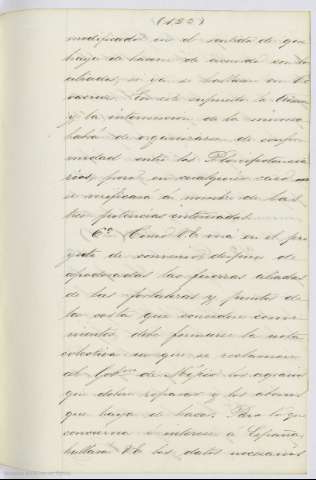 (122)
modificado en el sentido de que
haya de hacerse de acuerdo con los
aliados, si ya se hallasen en Ve-
racruz. En este supuesto la
y la intervencion de la misma
habrá de organizarse de confor-
midad entre los Plenipotencia-
rios, pero en cualquier caso
se verificará á nombre de las
tres potencias interesadas.
6º Como V.E. verá en el pro-
yecto de convenio, despues de
apoderadas las fuerzas aliadas
de las fortalezas y puntos de
la costa que consideren conve-
nientes, debe formarse la nota
colectiva en que se reclamen
al Gobno de Méjico los agravios
que deben reparar y los abonos
que haya de hacer. Para lo que
concierna é interese á España,
hallará V.E. los datos necesarios